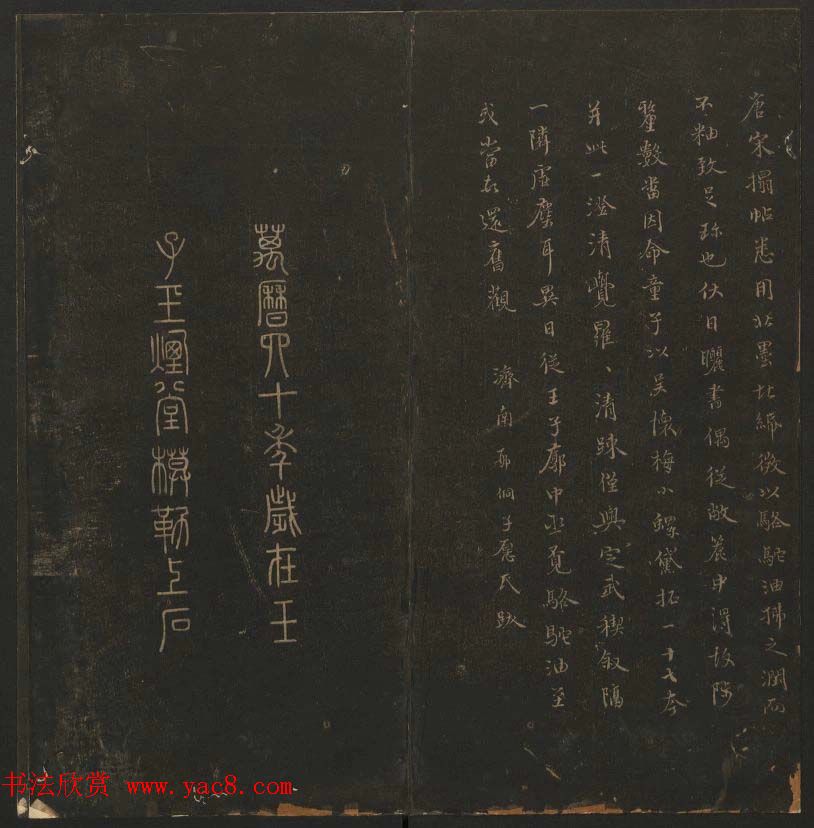 唐宋搨帖悉用北墨北綈微以駱駝油拂之潤而
不釉致足珎也伏日曬書偶從敝簏中得故
數當因命童子以吴懷梅小螺黛拓一十七本
并此一澄清覺羅、清疎僅與定武稧敘隔
一隣虗塵耳異日從王子廓中丞覓駱駝油至
或當起還舊觀 濟南邢侗子愿父跋
萬曆四十年歲在壬
子玉煙堂摹勒上石
书法欣赏 www.yac8.com